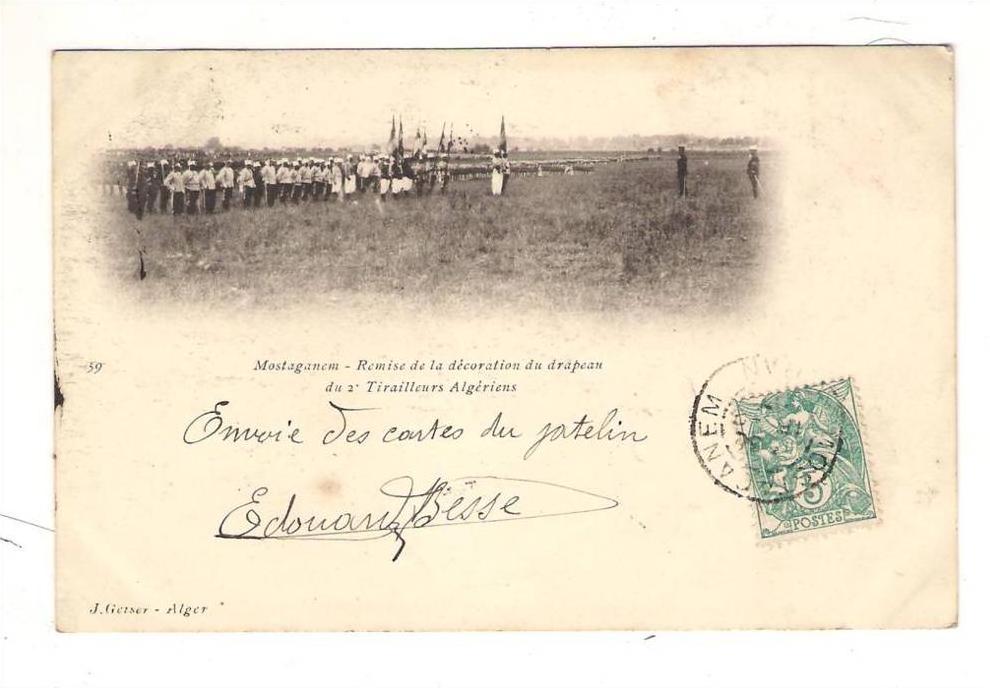 59
Mostaganem - Remise de la décoration du drapeau
du 2e Tirailleurs Algériens
Envoie des cartes du patelin
Edouard Besse
ANEM
5
POSTES
J. Geiser - Alger